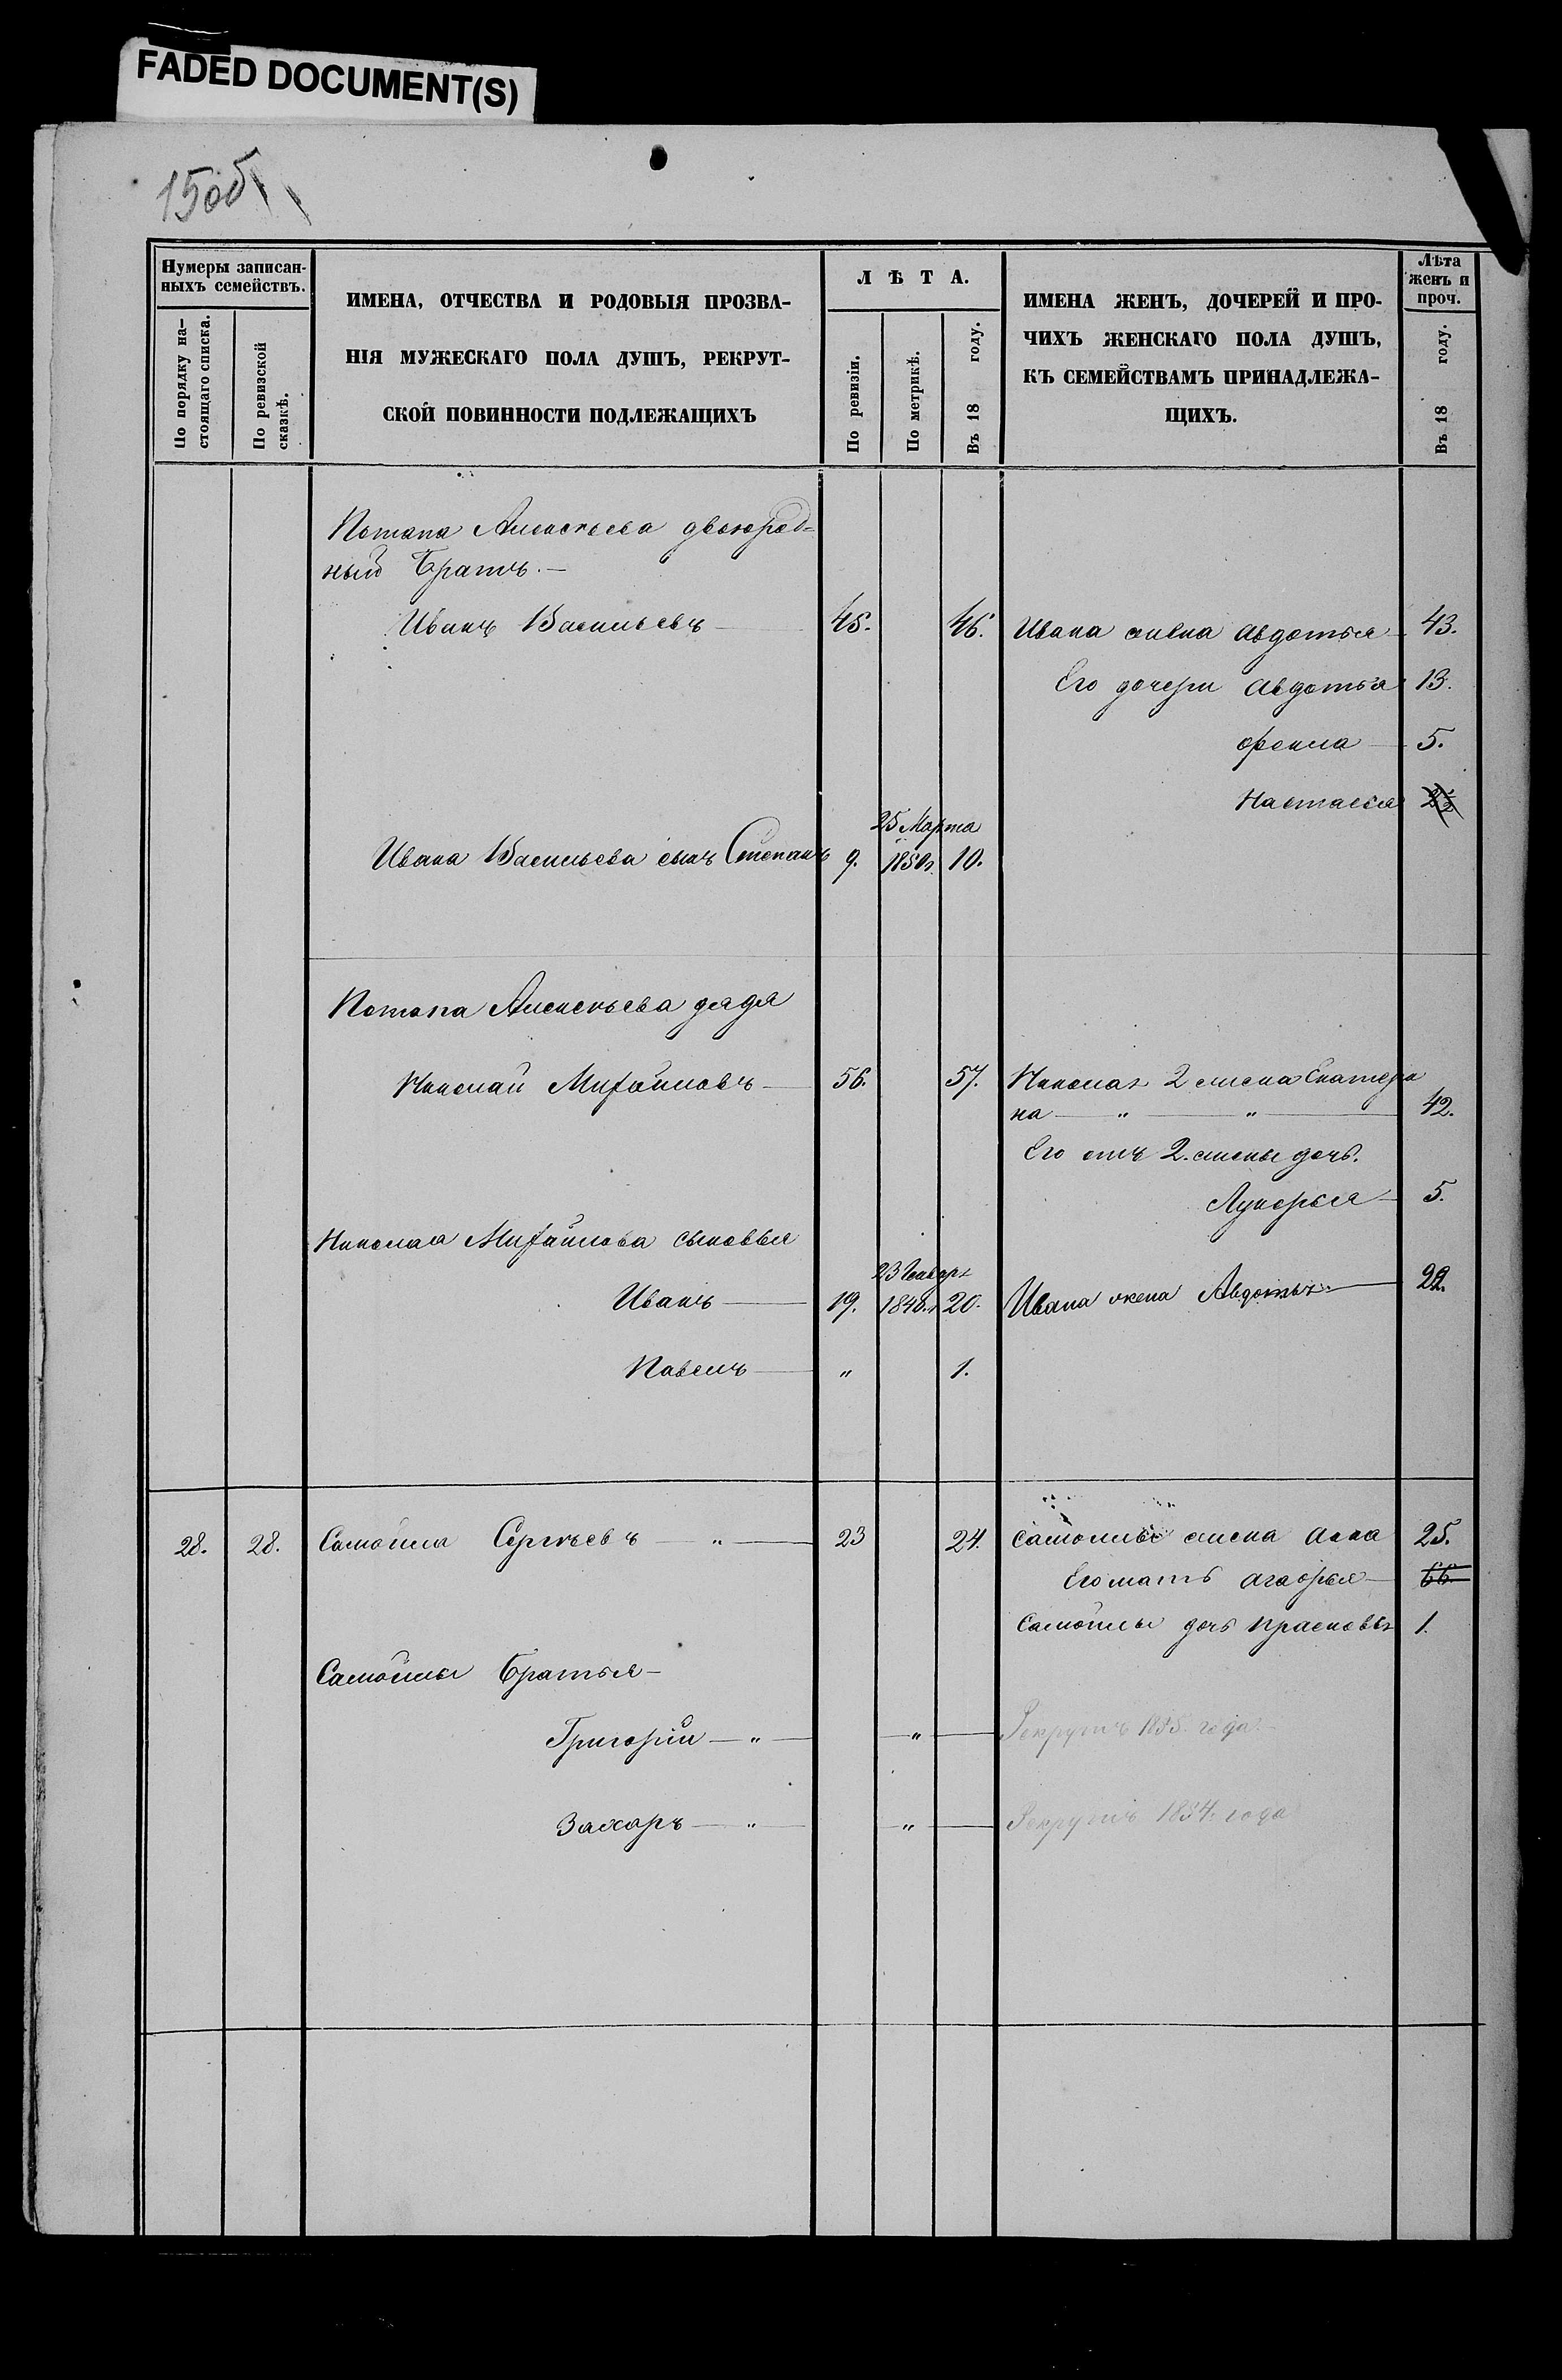 FADED DOCUMENT(S)
15об
Нумеры записан-
ныхъ семействъ.
По порядку на-
стоящаго списка.
По ревизской
сказкѣ.
ИМЕНА, ОТЧЕСТВА И РОДОВЫЯ ПРОЗВА-
НІЯ МУЖЕСКАГО ПОЛА ДУШЪ, РЕКРУТ-
СКОЙ ПОВИННОСТИ ПОДЛЕЖАЩИХЪ
ЛѢТА.
По ревизіи.
По метрикѣ.
Въ 18 году.
ИМЕНА ЖЕНЪ, ДОЧЕРЕЙ И ПРО-
ЧИХЪ ЖЕНСКАГО ПОЛА ДУШЪ,
КЪ СЕМЕЙСТВАМЪ ПРИНАДЛЕЖА-
ЩИХЪ.
Лѣта
женъ и
проч.
Въ 18 году.
Потапа Алексѣева двоюрод-
ный Братъ.—
Иванъ Васильевъ — 45. 46. Ивана жена Авдотья — 43.
Его дочери Авдотья 13.
Фекла — 5.
Настасья
25 Марта
Ивана Васильева сынъ Степанъ 9. 1850г. 10.
Потапа Алексѣева дядя
Николай Михайловъ — 56. 57. Николая 2 жена Екатери
на — " — " — 42.
Его отъ 2. жены дочь.
Лукерья — 5.
Николая Михайлова сыновья
23 Генваря
Иванъ — 19. 1840.г 20. Ивана жена Авдотья — 22.
Павелъ — " 1.
28. 28. Самойла Сергѣевъ — " — 23 24. Самойлы жена Анна 25.
Его мать Агафья — 66.
Самойлы дочь Прасковья 1.
Самойлы Братья —
Григорій — " — " — Рекрутъ 1855. года.
Захаръ — " — " — Рекрутъ 1854. года